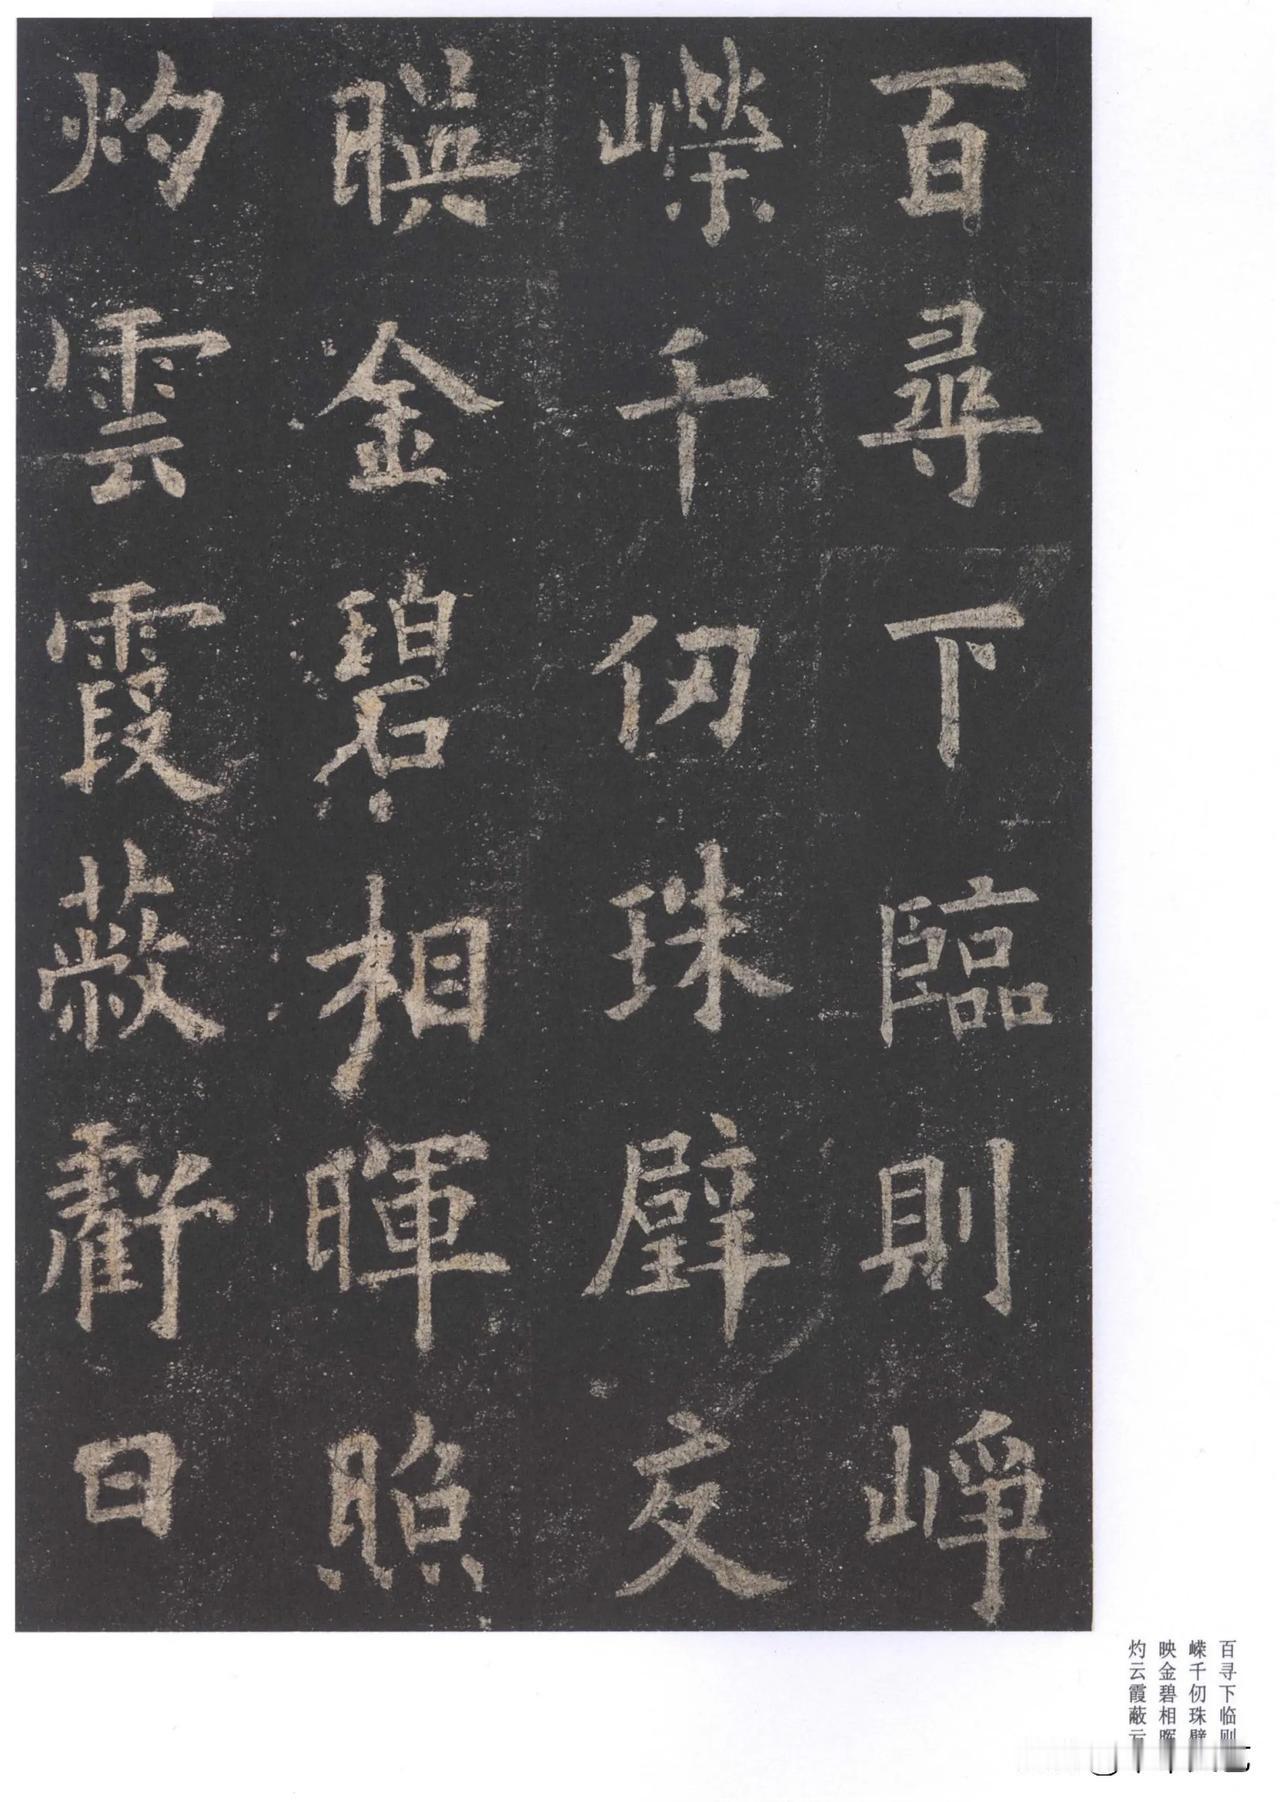 百尋下臨則崢
嶸千仞珠壁交
暎金碧相暉照
灼雲霞蔽虧日
百寻下临则
嵘千仞珠壁
映金碧相晖
灼云霞蔽亏